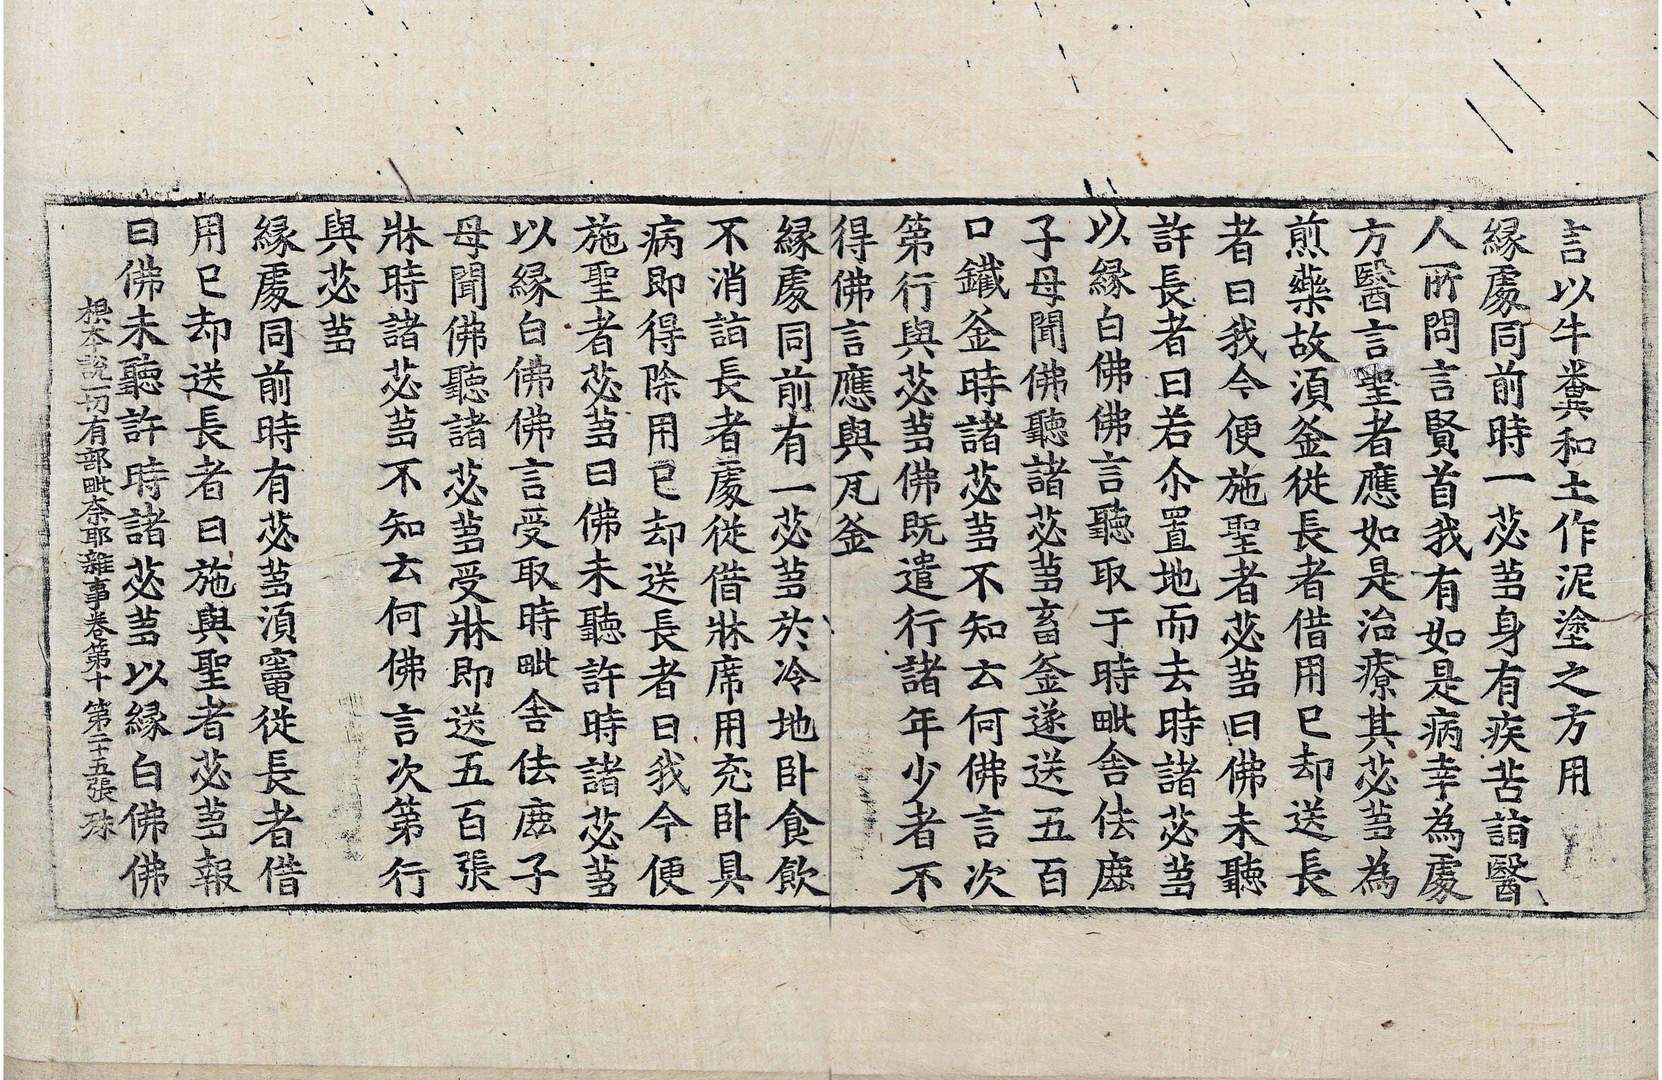 言以牛糞和土作泥塗之方用
縁處同前時一苾芻身有疾苦詣醫
人所問言賢首我有如是病幸為處
方醫言聖者應如是治療其苾芻為
煎藥故須釜從長者借用已却送長
者曰我今便施聖者苾芻曰佛未聽
許長者曰若尒置地而去時諸苾芻
以縁白佛佛言聽取于時毗舍佉鹿
子母聞佛聽諸苾芻畜釜遂送五百
口鐵釜時諸苾芻不知云何佛言次
第行與苾芻佛既遣行諸年少者不
得佛言應與瓦釜
縁處同前有一苾芻於冷地卧食飲
不消詣長者處從借牀席用充卧具
病即得除用已却送長者曰我今便
施聖者苾芻曰佛未聽許時諸苾芻
以縁白佛佛言受取時毗舍佉鹿子
母聞佛聽諸苾芻受牀即送五百張
牀時諸苾芻不知云何佛言次第行
與苾芻
縁處同前時有苾芻須竈從長者借
用已却送長者曰施與聖者苾芻報
曰佛未聽許時諸苾芻以縁白佛佛
根本說一切有部毗奈耶雜事卷第十 第二十五張 殊